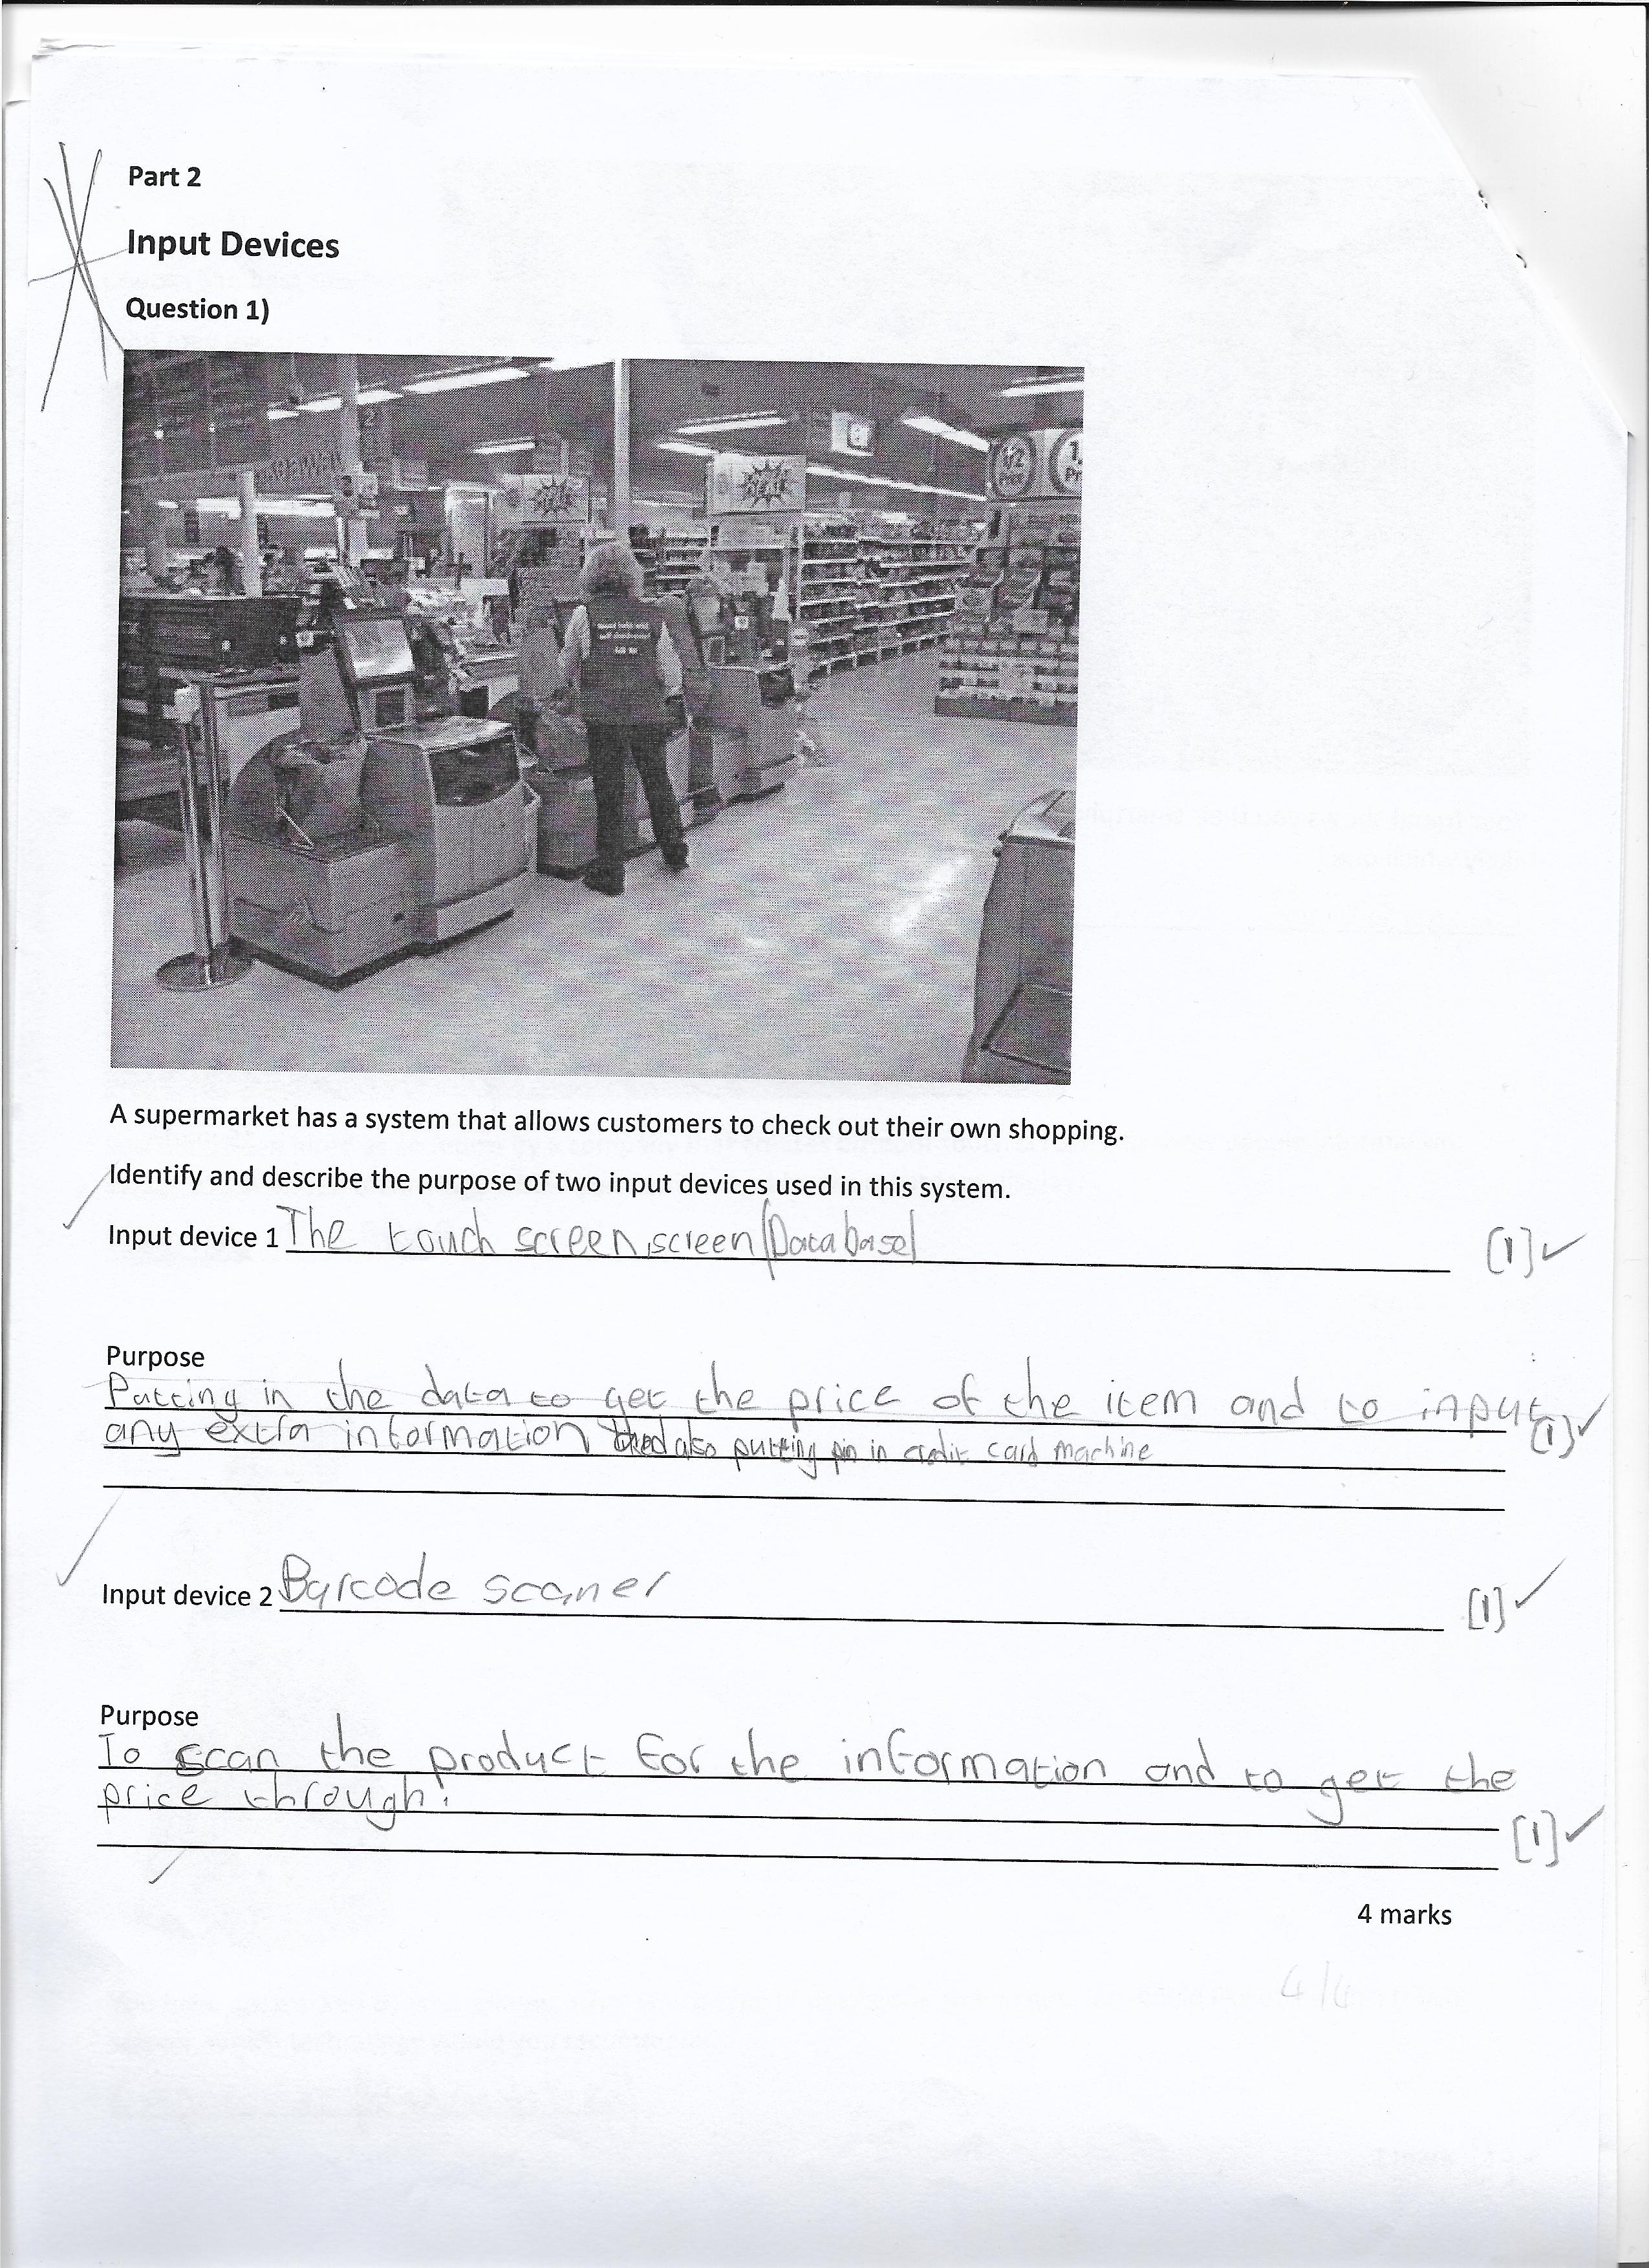 Part 2
Input Devices
Question 1)
1/2
Price
DEAL
A supermarket has a system that allows customers to check out their own shopping.
Identify and describe the purpose of two input devices used in this system.
Input device 1 The touch screen screen/Database [1] ✓
Purpose
Putting in the data to get the price of the item and to input
any extra information also putting pin in credit card machine [1] ✓
Input device 2 Barcode scaner [1] ✓
Purpose
To scan the product for the information and to get the
price through! [1] ✓
4 marks
4/4